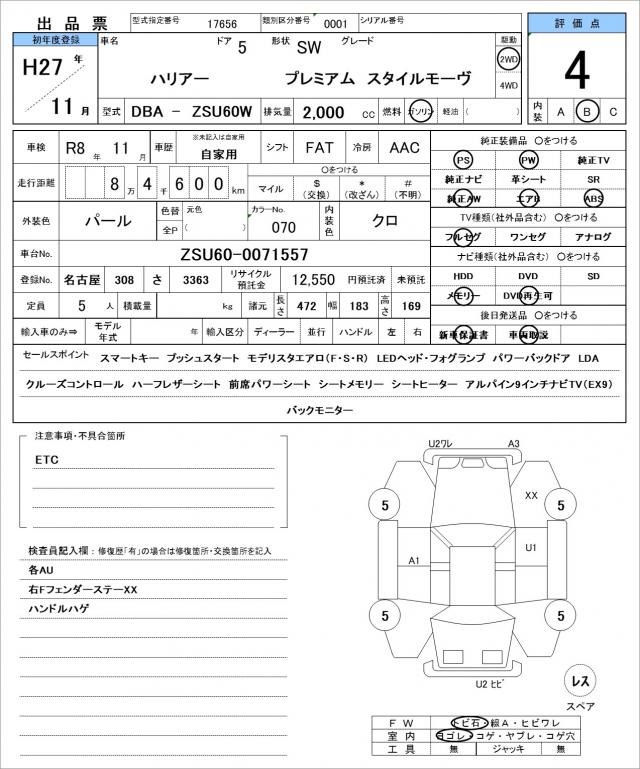 出品票 型式指定番号 17656 類別区分番号 0001 シリアル番号 評価点
初年度登録 車名 ドア 5 形状 SW グレード 駆動
H27 年 11 月 ハリアー プレミアム スタイルモーヴ 2WD 4WD 4
型式 DBA － ZSU60W 排気量 2,000 cc 燃料 ガソリン 軽油 ( ) 内装 A B C
車検 R8 年 11 月 車歴 ※未記入は自家用 自家用 シフト FAT 冷房 AAC
走行距離 8 万 4 千 6 0 0 km ○をつける
マイル $ (交換) * (改ざん) # (不明)
外装色 パール 色替 全P 元色 ( ) カラーNo. 070 内装色 クロ
車台No. ZSU60-0071557
登録No. 名古屋 308 さ 3363 リサイクル預託金 12,550 円預託済 未預託
定員 5 人 積載量 kg 諸元 長さ 472 幅 183 高さ 169
輸入車のみ⇒ モデル年式 年 輸入区分 ディーラー 並行 ハンドル 左 右
純正装備品 ○をつける
PS PW 純正TV
純正ナビ 革シート SR
純正AW エアB ABS
TV種類(社外品含む) ○をつける
フルセグ ワンセグ アナログ
ナビ種類(社外品含む) ○をつける
HDD DVD SD
メモリー DVD再生可
後日発送品 ○をつける
新車保証書 車両取説
セールスポイント スマートキー プッシュスタート モデリスタエアロ(F・S・R) LEDヘッド・フォグランプ パワーバックドア LDA
クルーズコントロール ハーフレザーシート 前席パワーシート シートメモリー シートヒーター アルパイン9インチナビTV(EX9)
バックモニター
注意事項・不具合箇所
ETC
検査員記入欄：修復歴「有」の場合は修復箇所・交換箇所を記入
各AU
右FフェンダーステーXX
ハンドルハゲ
U2ワレ A3
XX
5 5
A1 U1
5 5
U2 ヒビ
レス
スペア
FW トビ石・線A・ヒビワレ
室内 ヨゴレ・コゲ・ヤブレ・コゲ穴
工具 無 ジャッキ 無